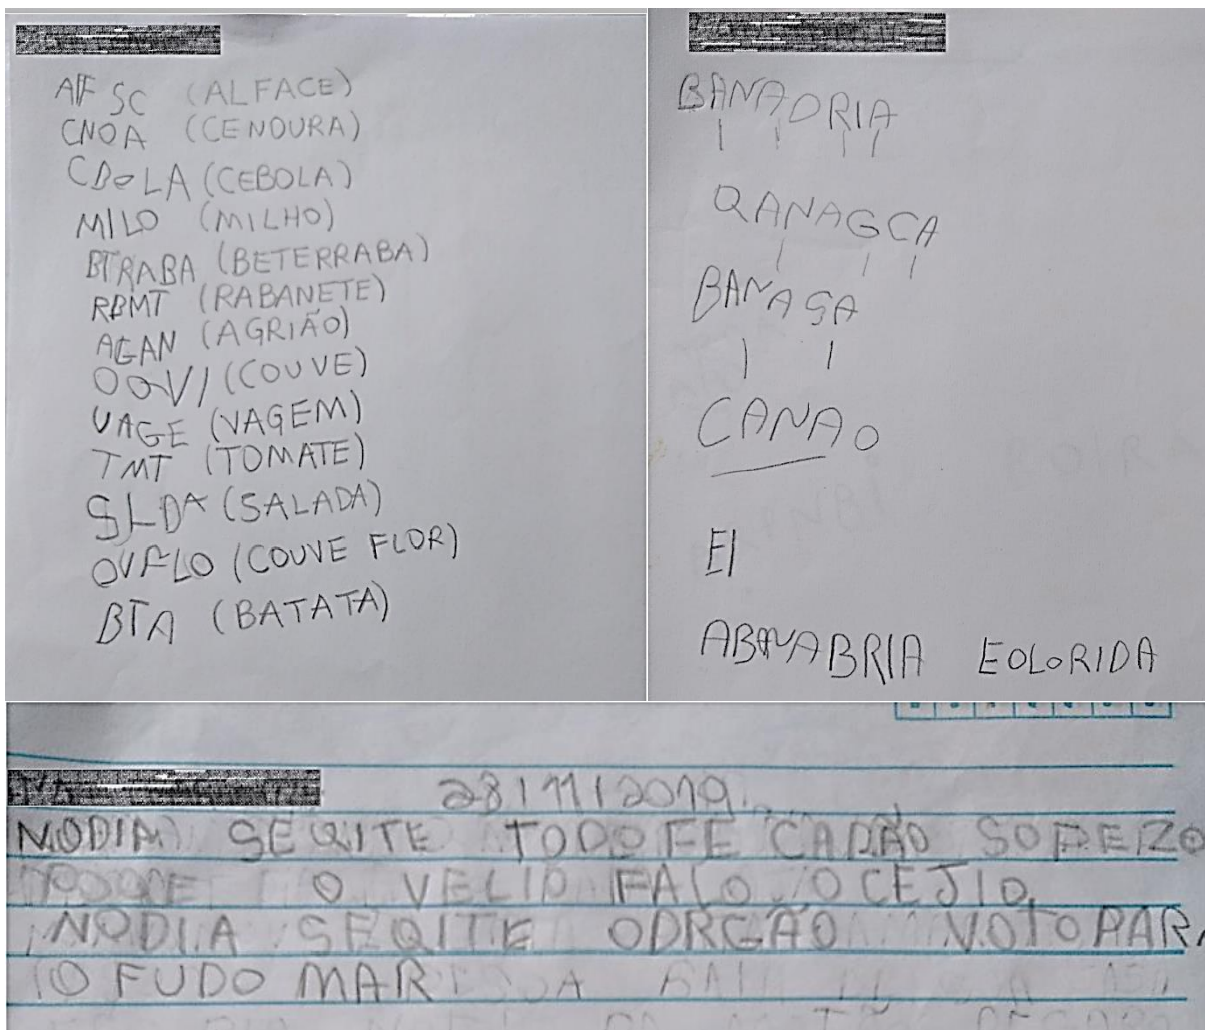 AFSC (ALFACE)
CNOA (CENOURA)
CBOLA (CEBOLA)
MILO (MILHO)
BTRABA (BETERRABA)
RBMT (RABANETE)
AGAN (AGRIÃO)
OOVI (COUVE)
VAGE (VAGEM)
TMT (TOMATE)
SLDA (SALADA)
OVFLO (COUVE FLOR)
BTA (BATATA)
BANADRIA
QANAGCA
BANAGA
CANAO
EI
ABANABRIA EOLORIDA
28/11/2019
NODIA SEQITE TODO FE CADÃO SOPEZO
O VELIO FALO O CEJIO
NODIA SEQITE ODRGÃO VOTO PARA
O FUDO MAR